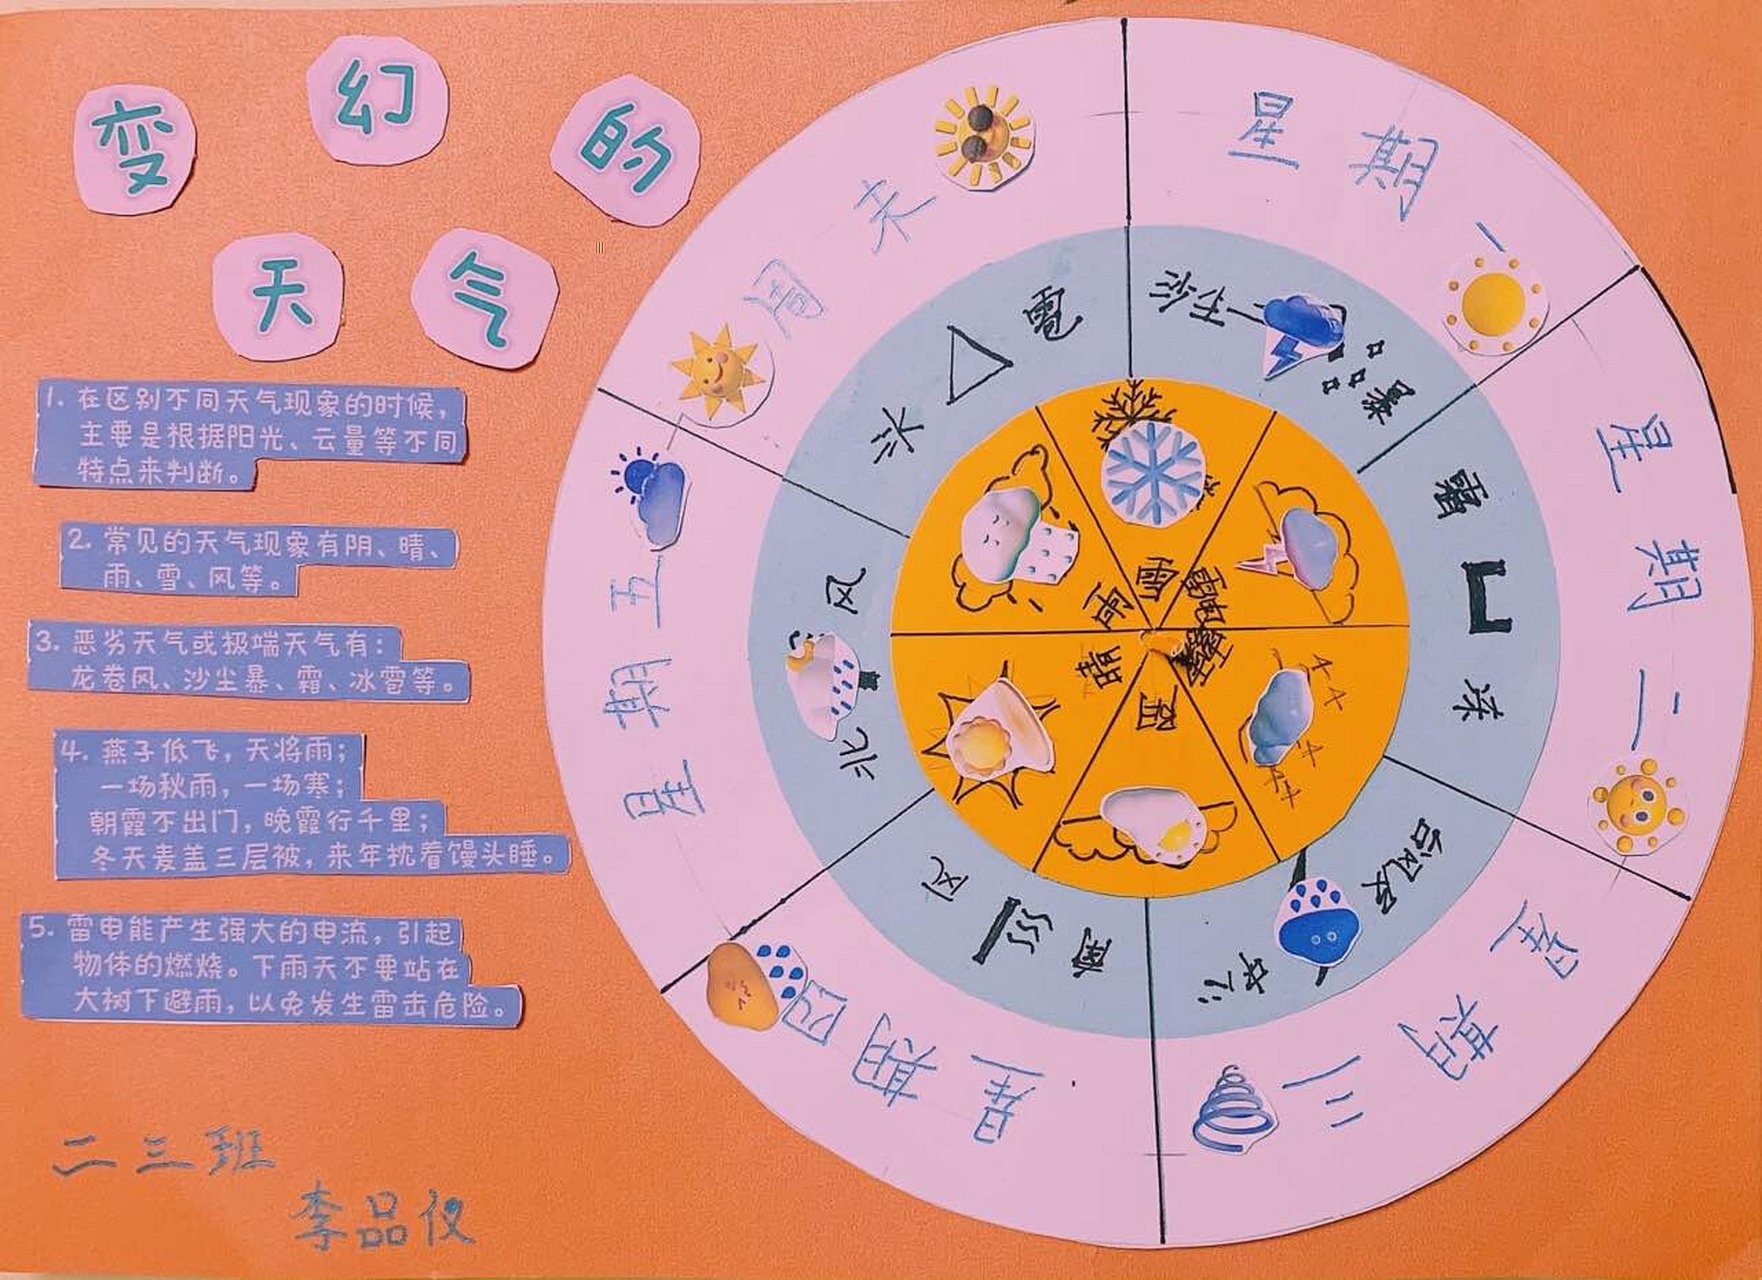 变幻的
天气
1. 在区别不同天气现象的时候，
主要是根据阳光、云量等不同
特点来判断。
2. 常见的天气现象有阴、晴、
雨、雪、风等。
3. 恶劣天气或极端天气有：
龙卷风、沙尘暴、霜、冰雹等。
4. 燕子低飞，天将雨；
一场秋雨，一场寒；
朝霞不出门，晚霞行千里；
冬天麦盖三层被，来年枕着馒头睡。
5. 雷电能产生强大的电流，引起
物体的燃烧。下雨天不要站在
大树下避雨，以免发生雷击危险。
二三班
李品仪
星期一
星期二
星期三
星期四
星期五
周末
霜冻
台风
南风
北风
冰雹
雪
阴
晴